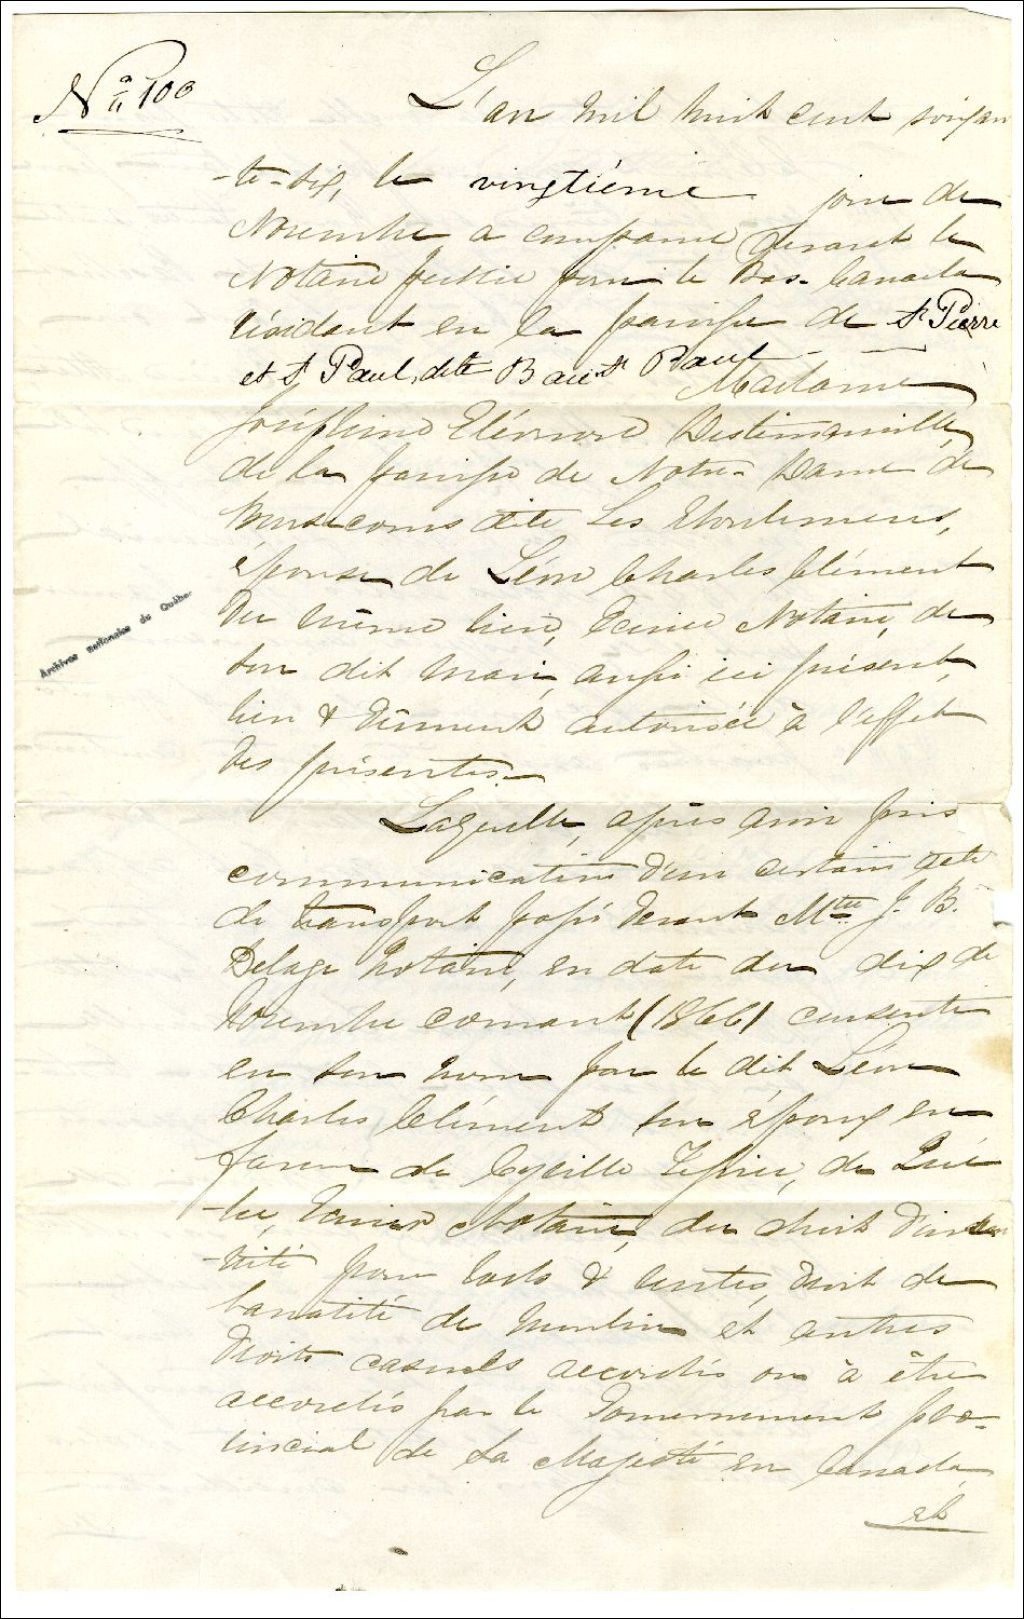 No 100
L'an mil huit cent soixan
-te-six, le vingtième jour de
Novembre a comparu devant le
Notaire public pour le Bas-Canada
résidant en la paroisse de St Pierre
et St Paul, dite Baie St Paul - -
Madame
Joséphine Eléonore Destimauville,
de la paroisse de Notre-Dame de
dite Les Eboulemens,
épouse de Léon Charles Clément
du même lieu, Ecuier Notaire, de
son dit mari, aussi ici présent,
bien & dûment autorisée à l'effet
des présentes.
Laquelle, après avoir pris
communication d'un certain acte
de transport passé devant Mtre J. B.
Delage Notaire, en date du dix de
Novembre courant (1866) consenti
en son nom par le dit Léon
Charles Clément son époux en
faveur de Cyrille Tessier, de Qué
-bec, Ecuier Notaire, du droit d'indem
-nité pour lods & ventes, droit de
banalité de moulin et autres
droits casuels accordés ou à être
accordés par le Gouvernement pro-
vincial de Sa Majesté en Canada,
et
Archives nationales du Québec